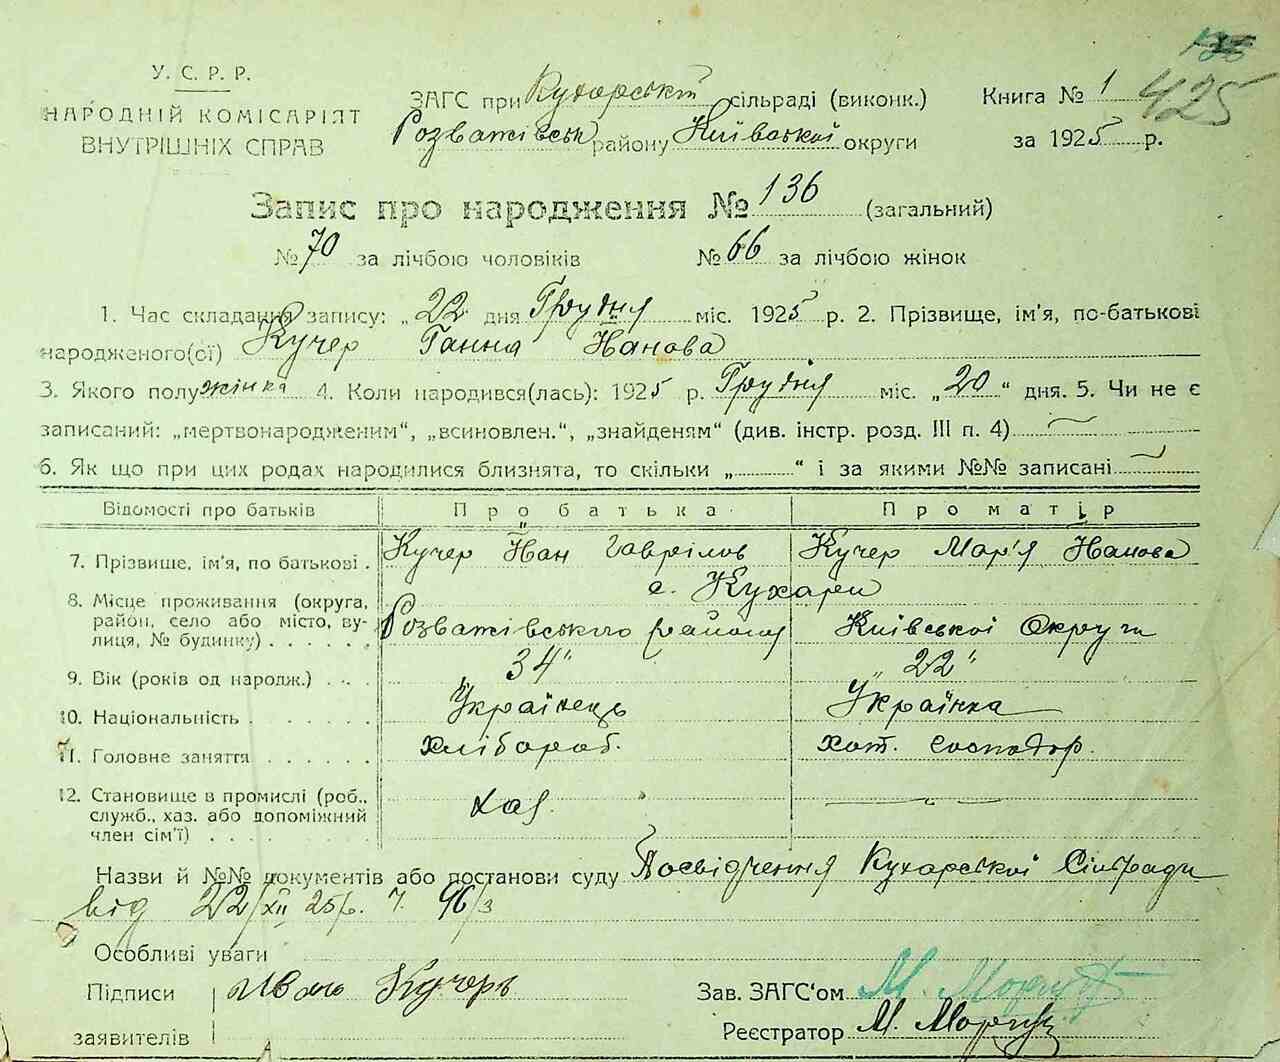 У. С. Р. Р.
НАРОДНІЙ КОМІСАРІЯТ
ВНУТРІШНІХ СПРАВ
ЗАГС при Кухарській сільраді (виконк.)
Розважівськ району Київської округи
Книга № 1
425
за 1925 р.
Запис про народження № 136 (загальний)
№ 70 за лічбою чоловіків № 66 за лічбою жінок
1. Час складання запису: „22 дня Грудня міс. 1925 р. 2. Прізвище, ім'я, по-батькові
народженого(ої) Кучер Ганна Йванова
3. Якого полу жінка 4. Коли народився(лась): 1925 р. Грудня міс. „20“ дня. 5. Чи не є
записаний: „мертвонародженим“, „всиновлен.“, „знайденям“ (див. інстр. розд. III п. 4)
6. Як що при цих родах народилися близнята, то скільки „ “ і за якими №№ записані
Відомості про батьків Про батька Про матір
7. Прізвище, ім'я, по батькові . Кучер Йван Гаврілов Кучер Мар'я Йванова
8. Місце проживання (округа, район, село або місто, вулиця, № будинку) . . . . . с. Кухари
Розважівського району Київської Округи
9. Вік (років од народж.) . . . 34" „22"
10. Національність . . . . . . Українець Українка
11. Головне заняття . . . . . . хлібороб. хат. господар.
12. Становище в промислі (роб., служб., хаз. або допоміжний член сім'ї) . . . . хаз.
Назви й №№ документів або постанови суду Посвідчення Кухарської Сільради
від 22/XII 25 р. Ч. 96/3
Особливі уваги
Підписи заявителів Иванъ Кучеръ
Зав. ЗАГС'ом М.
Реєстратор М.